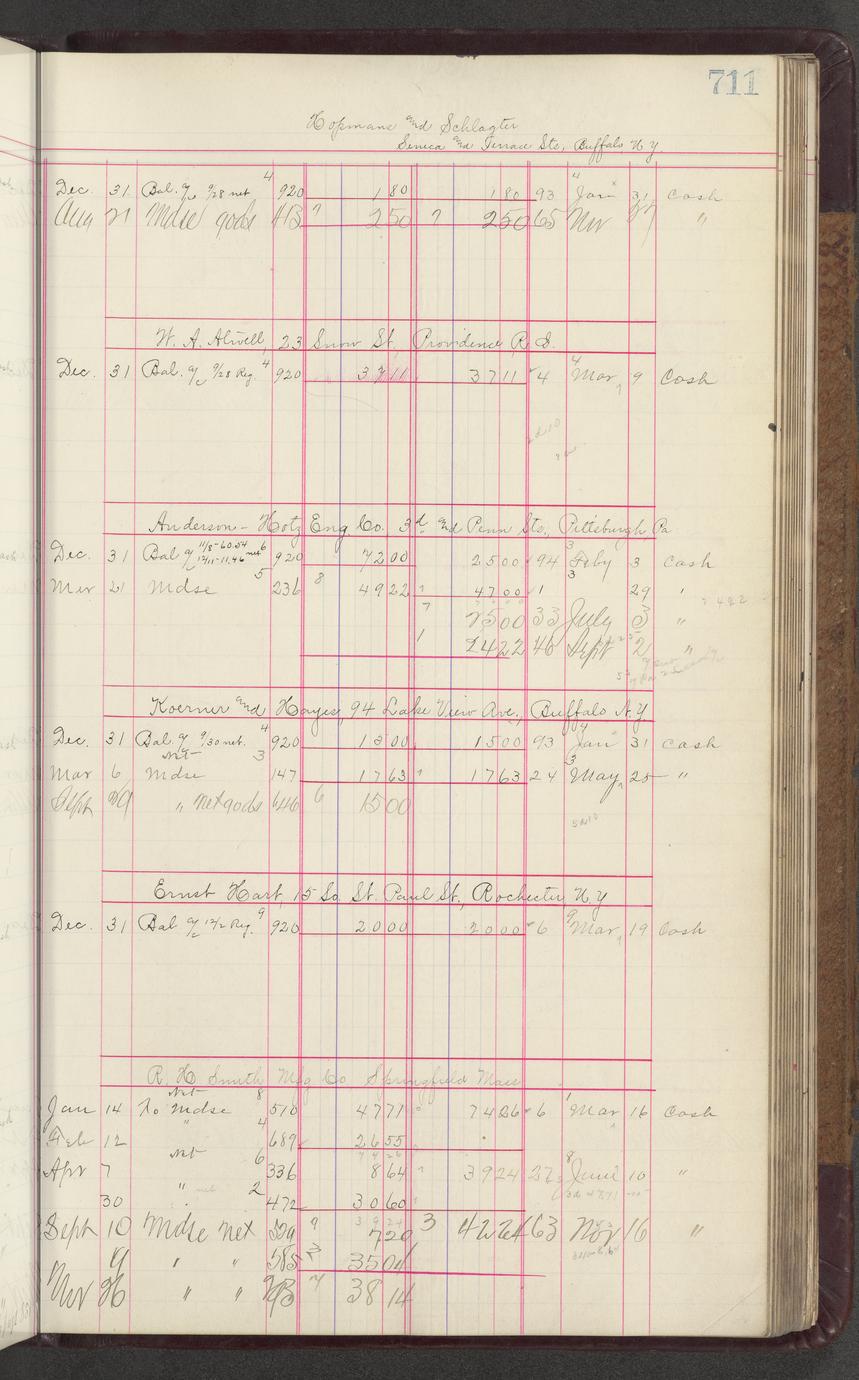 711
Hopmans and Schlagter
Seneca and Terrace Sts, Buffalo N.Y.
Dec. 31 Bal. a/c 9/28 net 4 920 1 80 1 80 93 4 Jan 31 Cash
Aug 21 Mdse gods 413 7 2 50 7 2 50 65 Nov 27 "
W. A. Atwell, 23 Snow St. Providence R.I.
Dec. 31 Bal. a/c 9/28 Reg. 4 920 37 11 37 11 4 4 Mar 9 Cash
Anderson-Hotz Eng Co. 3d and Penn Sts., Pittsburgh Pa
Dec. 31 Bal a/c 11/8-60.54 12/11-11.46 net 6 920 72 00 25 00 94 3 Feby 3 Cash
Mar 21 Mdse 5 236 8 49 22 47 00 1 3 29 "
7 25 00 33 July 3 "
1 24 22 46 Sept 2 "
Koerner and Hayes, 94 Lake View Ave., Buffalo N.Y
Dec. 31 Bal a/c 9/30 net. 4 920 15 00 15 00 93 4 Jan 31 Cash
Mar 6 Mdse Net 3 147 17 63 17 63 24 3 May 25 "
Sept 29 " net gods 646 6 15 00
Ernst Hart, 15 So. St. Paul St., Rochester N.Y
Dec. 31 Bal a/c 12/2 Reg. 9 920 20 00 20 00 6 9 Mar 19 Cash
R. H. Smith Mfg Co Springfield Mass
Jan 14 To Mdse Net 8 510 47 71 74 26 6 1 Mar 16 Cash
Feb 12 " 4 689 26 55
74 26
Apr 7 Net 6 336 8 64 39 24 27 8 June 10 "
30 " net 2 472 30 60
39 24
Sept 10 Mdse net 529 9 7 20 3 42 24 63 Nov 16 "
9 " " 585 3 35 04
Nov 26 " " 7 38 14